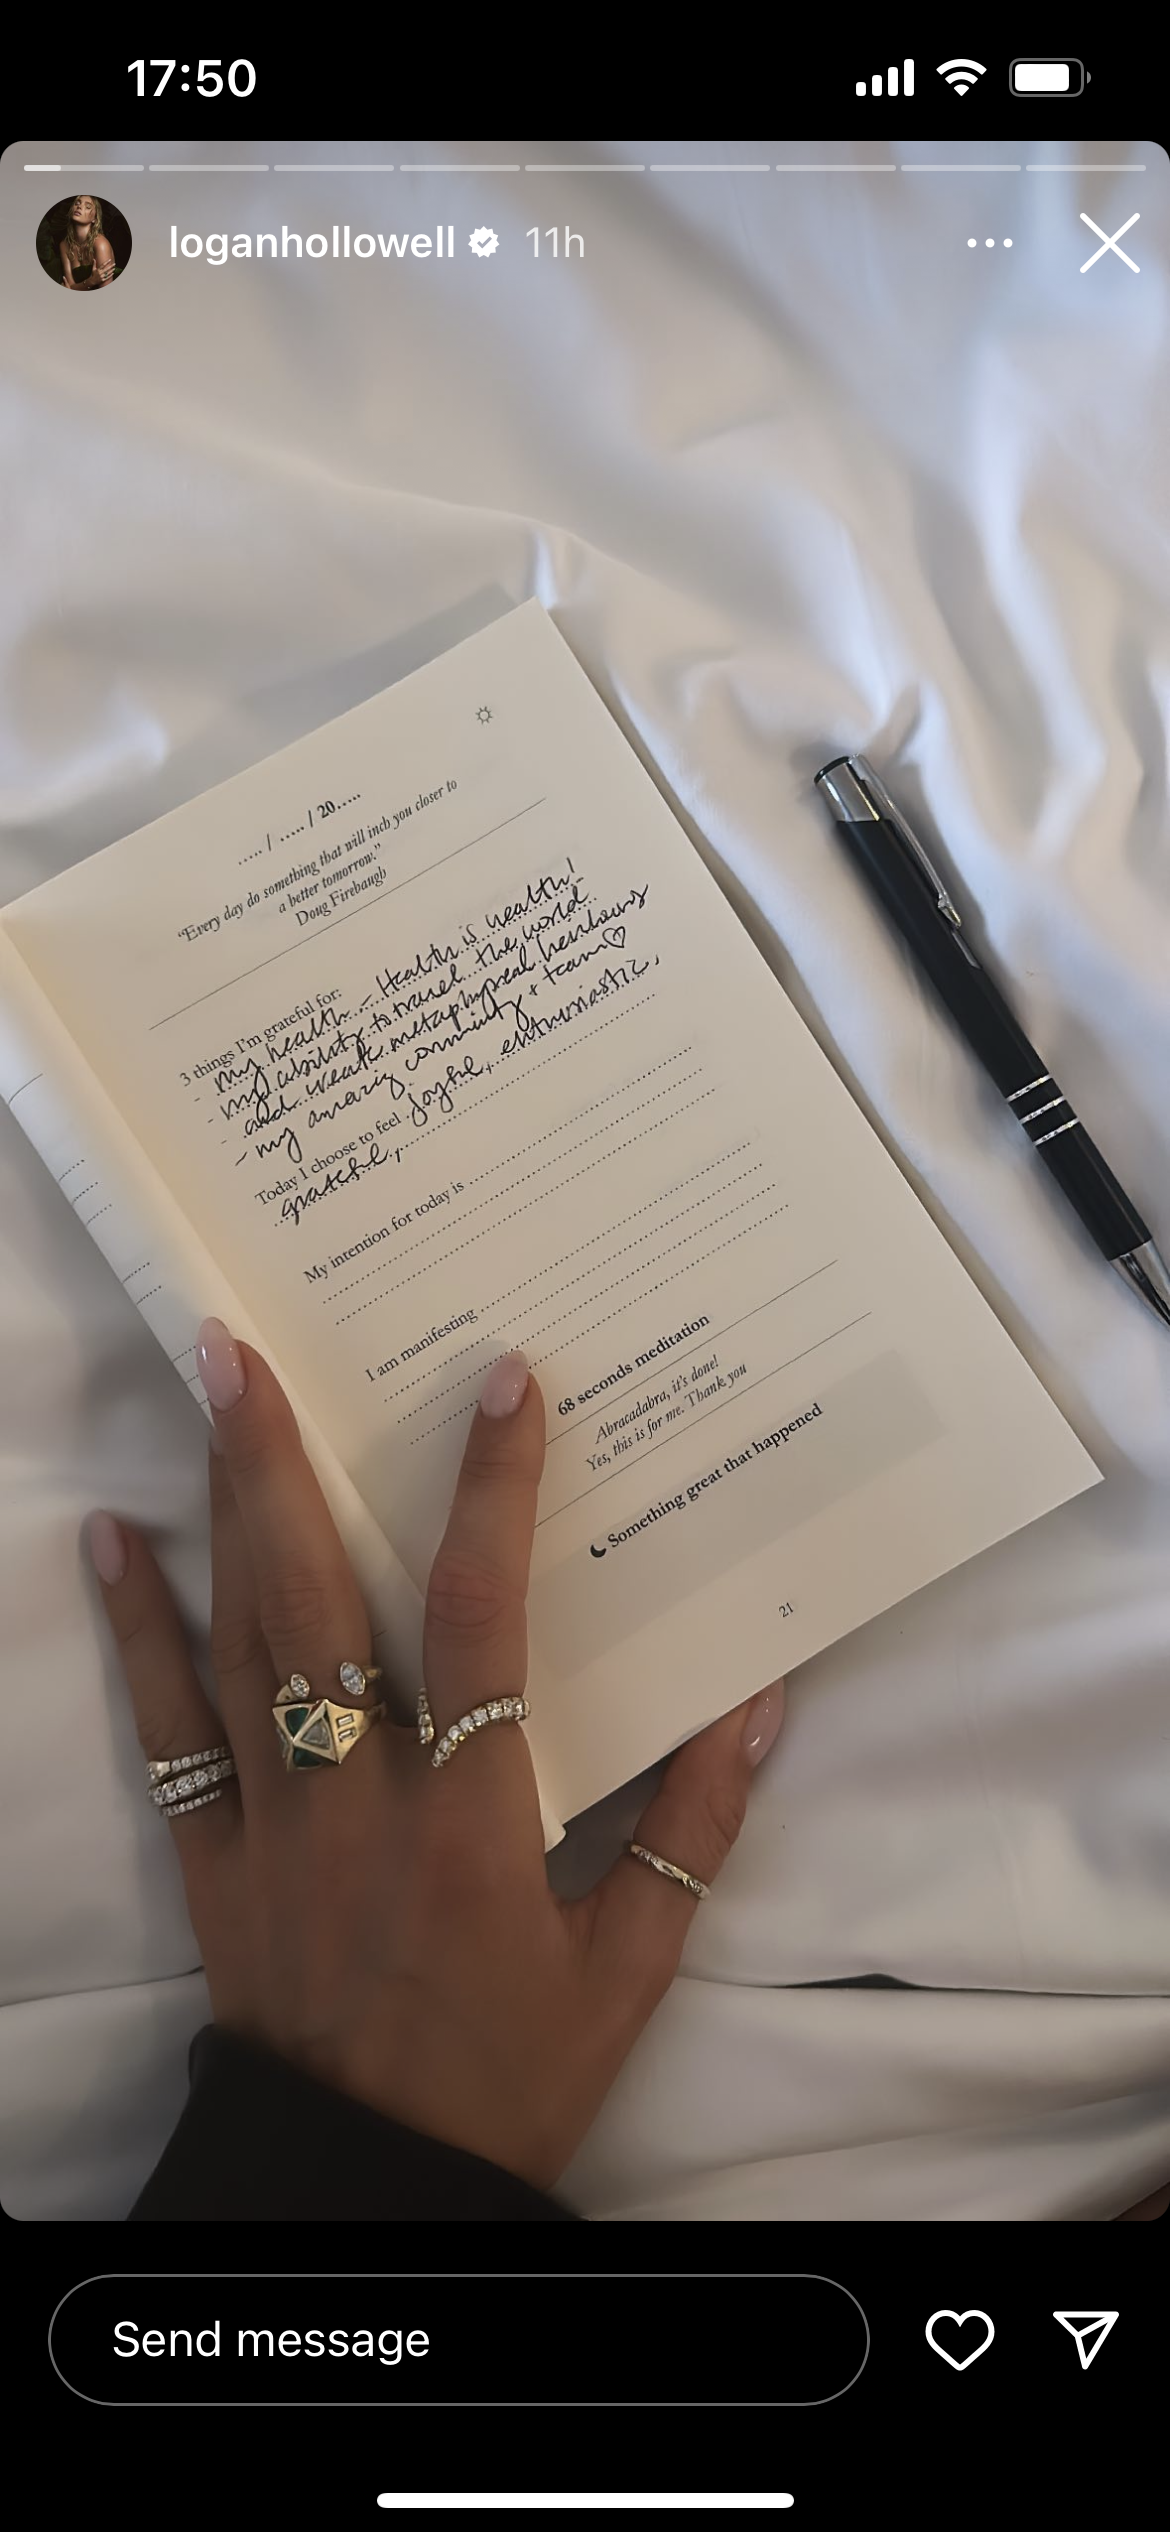 17:50
loganhollowell 11h
..... / ..... / 20.....
“Every day do something that will inch you closer to
a better tomorrow.”
Doug Firebaugh
3 things I'm grateful for:
- my health - Health is wealth!
- my ability to travel the world
- and create metaphysical heirlooms
- my amazing community + team ♡
Today I choose to feel joyful, enthusiastic,
grateful,
My intention for today is
I am manifesting
68 seconds meditation
Abracadabra, it's done!
Yes, this is for me. Thank you
Something great that happened
21
Send message